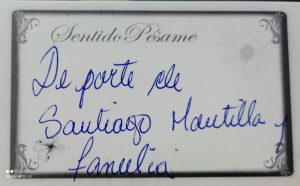 Sentido Pésame
De parte de
Santiago Mantilla y
familia